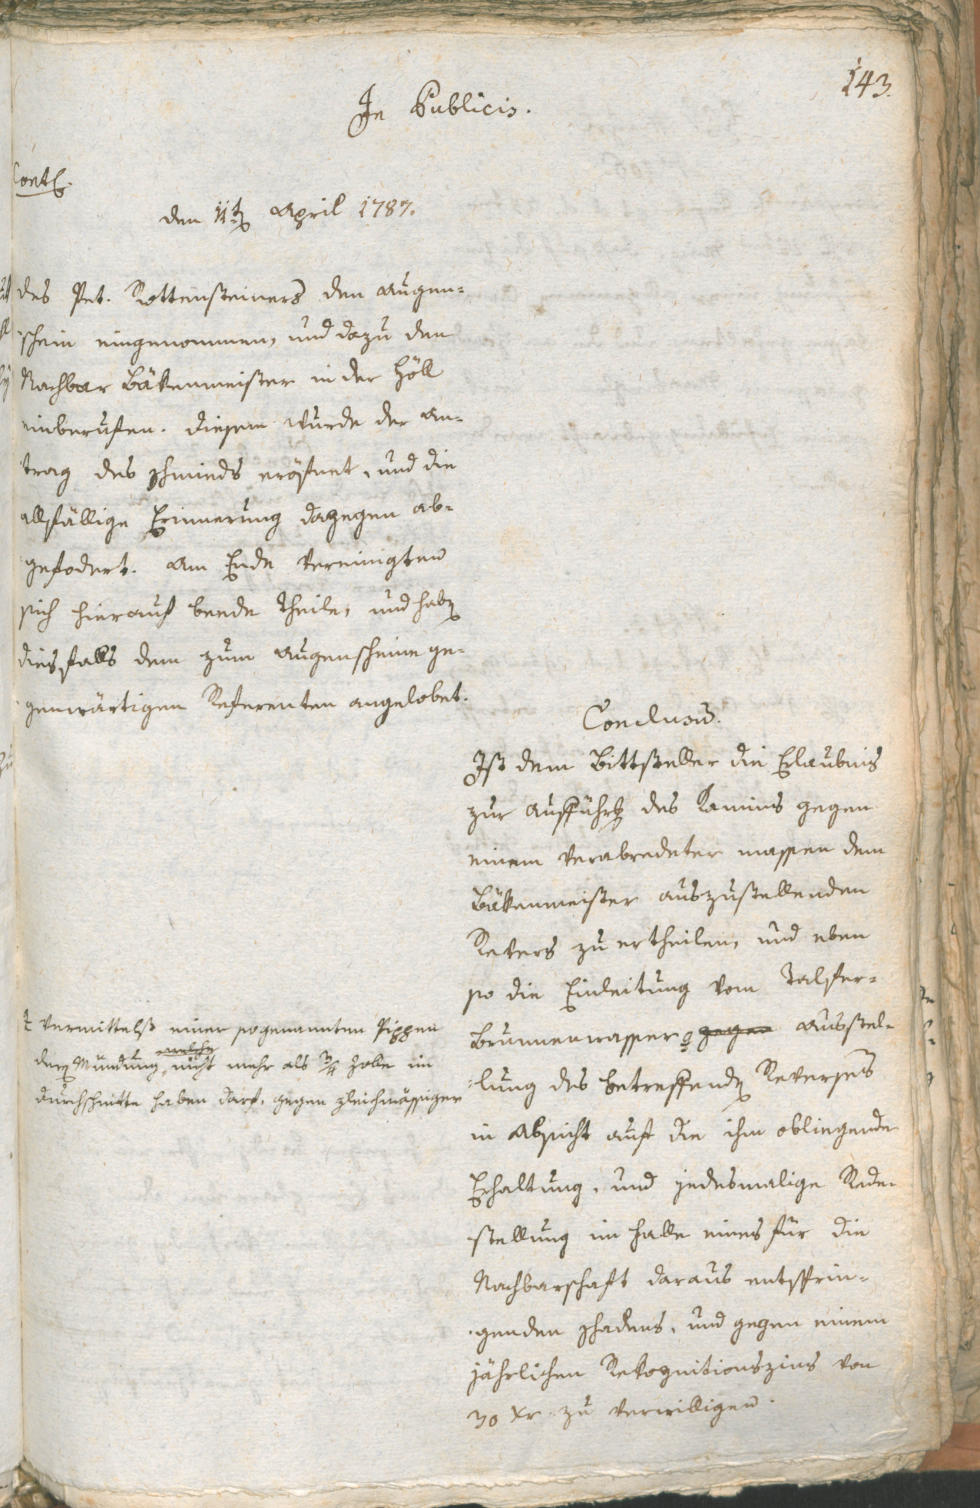 143.
In Publicis.
Cont.
den 11t April 1787.
des Pet. Rottensteiners den Augen-
schein eingenommen, und dazu den
Nachbar Bäkenmeister in der Höll
einberuffen. diesem wurde der An-
trag des Schmieds eröfnet, und die
allfällige Erinnerung dagegen ab-
gefodert. Am Ende vereinigten
sich hierauf beede Theile, und haben
diesfalls dem zum Augenscheine ge-
genwärtigen Referenten angelobet.
Conclusum.
Ist dem Bittsteller die Erlaubnis
zur Ausführung des Kamins gegen
einem verabredeter massen dem
Bäkenmeister auszustellenden
Revers zu ertheilen, und eben
so die Einleitung vom Talfer-
Brunnenwasser gegen Ausstel-
lung des betreffenden Reverses
in Absicht auf die ihm obliegende
Erhaltung, und jedesmalige Rede-
stellung im Falle eines für die
Nachbarschaft daraus entsprin-
genden Schadens, und gegen einem
jährlichen Rekognitionszins von
30 Xr zu verwilligen.
vermittelst einer sogenannten Pippen
deren Mündung welche nicht mehr als 3/4 Zolle im
durchschnitte haben darf, gegen gleichmässiger